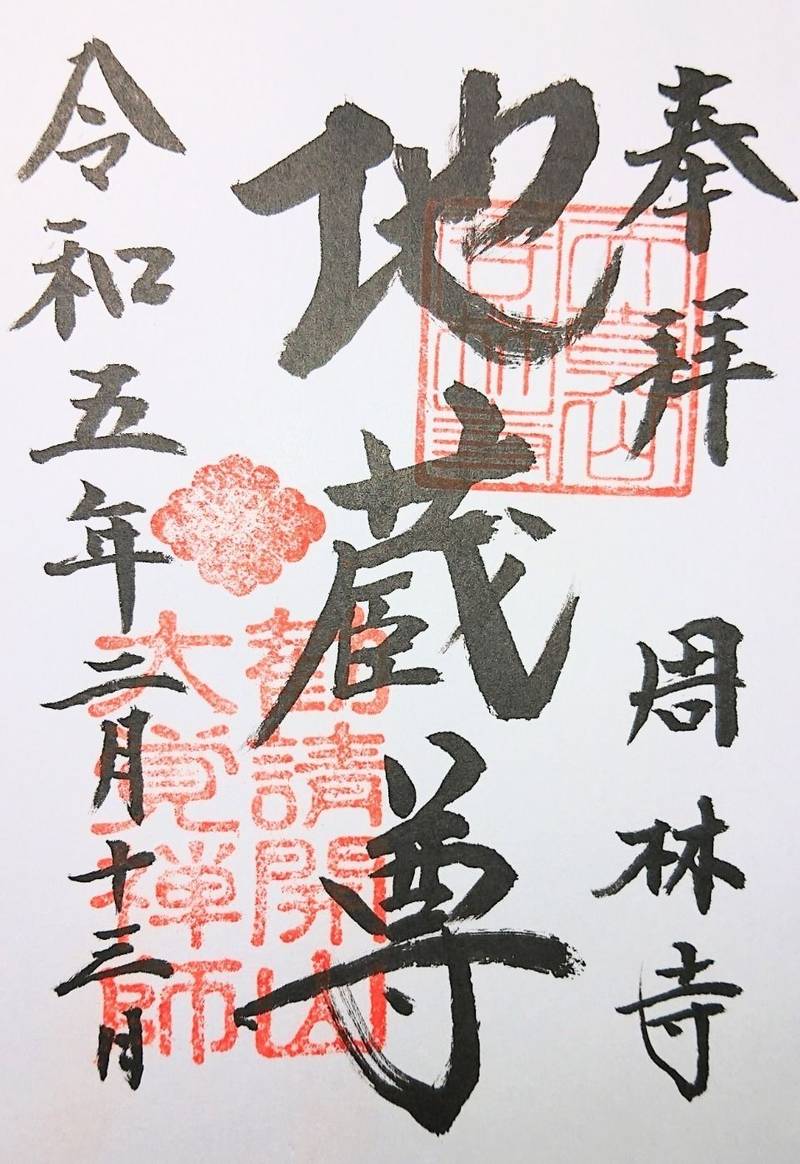 奉拝　周林寺
地蔵尊
令和五年二月十三日
勸請開山
大覚禅師